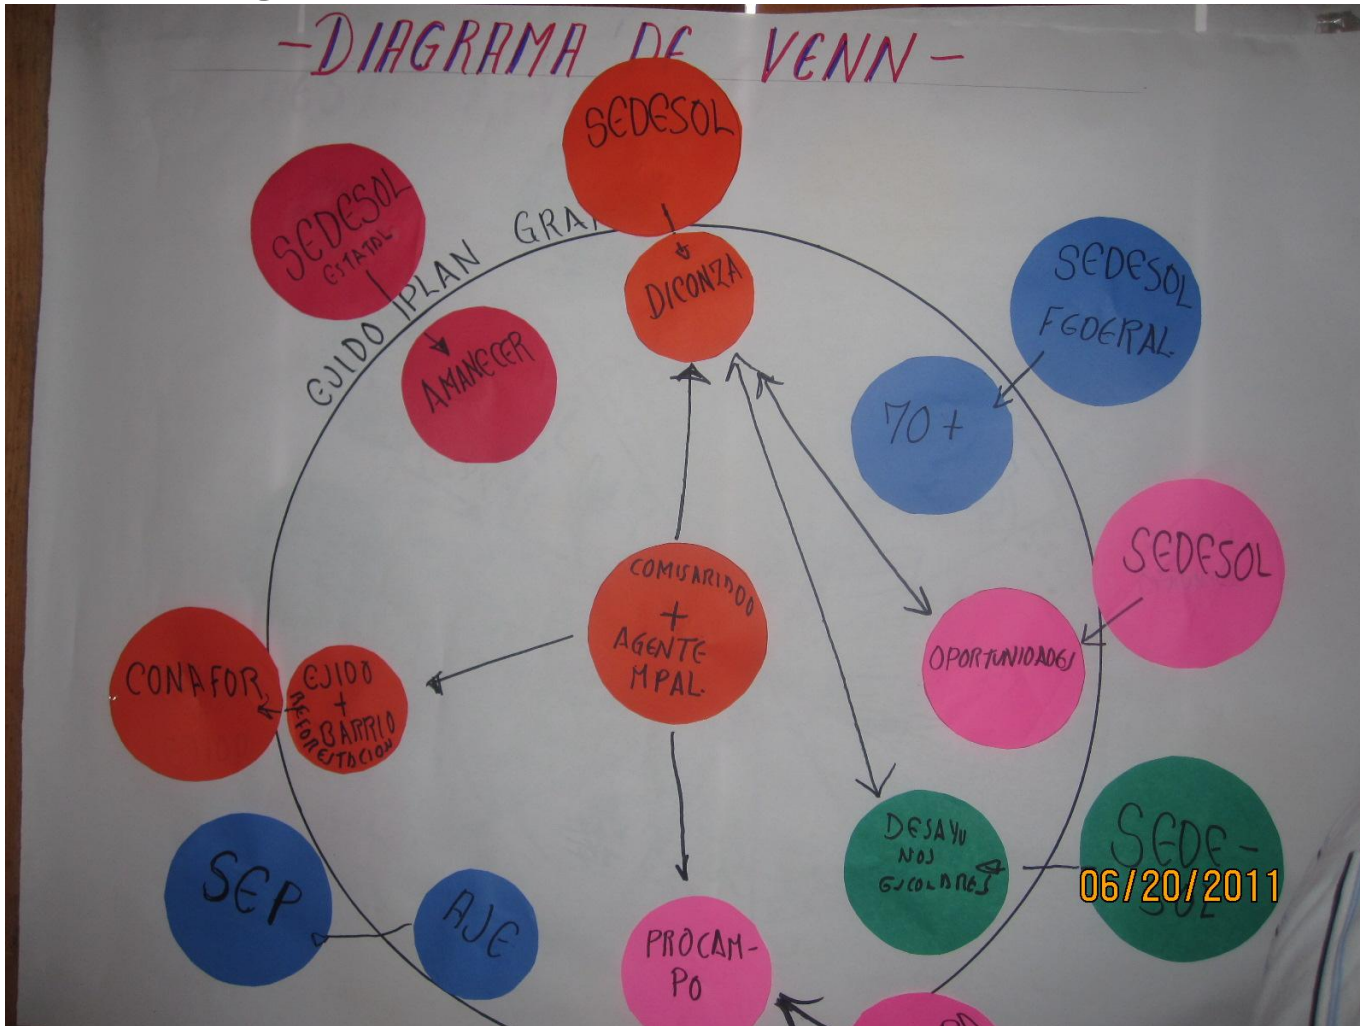 -DIAGRAMA DE VENN-
SEDESOL
SEDESOL
ESTATAL
EJIDO PLAN
DICONZA
SEDESOL
FEDERAL.
AMANECER
70+
SEDESOL
COMISARIDOO
+
AGENTE
MPAL.
OPORTUNIDADES
CONAFOR
EJIDO
+
BARRIO
REFORESTACION
DESAYU
NOS
ESCOLARES
SEDE-
SOL
06/20/2011
SEP
AJE
PROCAM-
PO